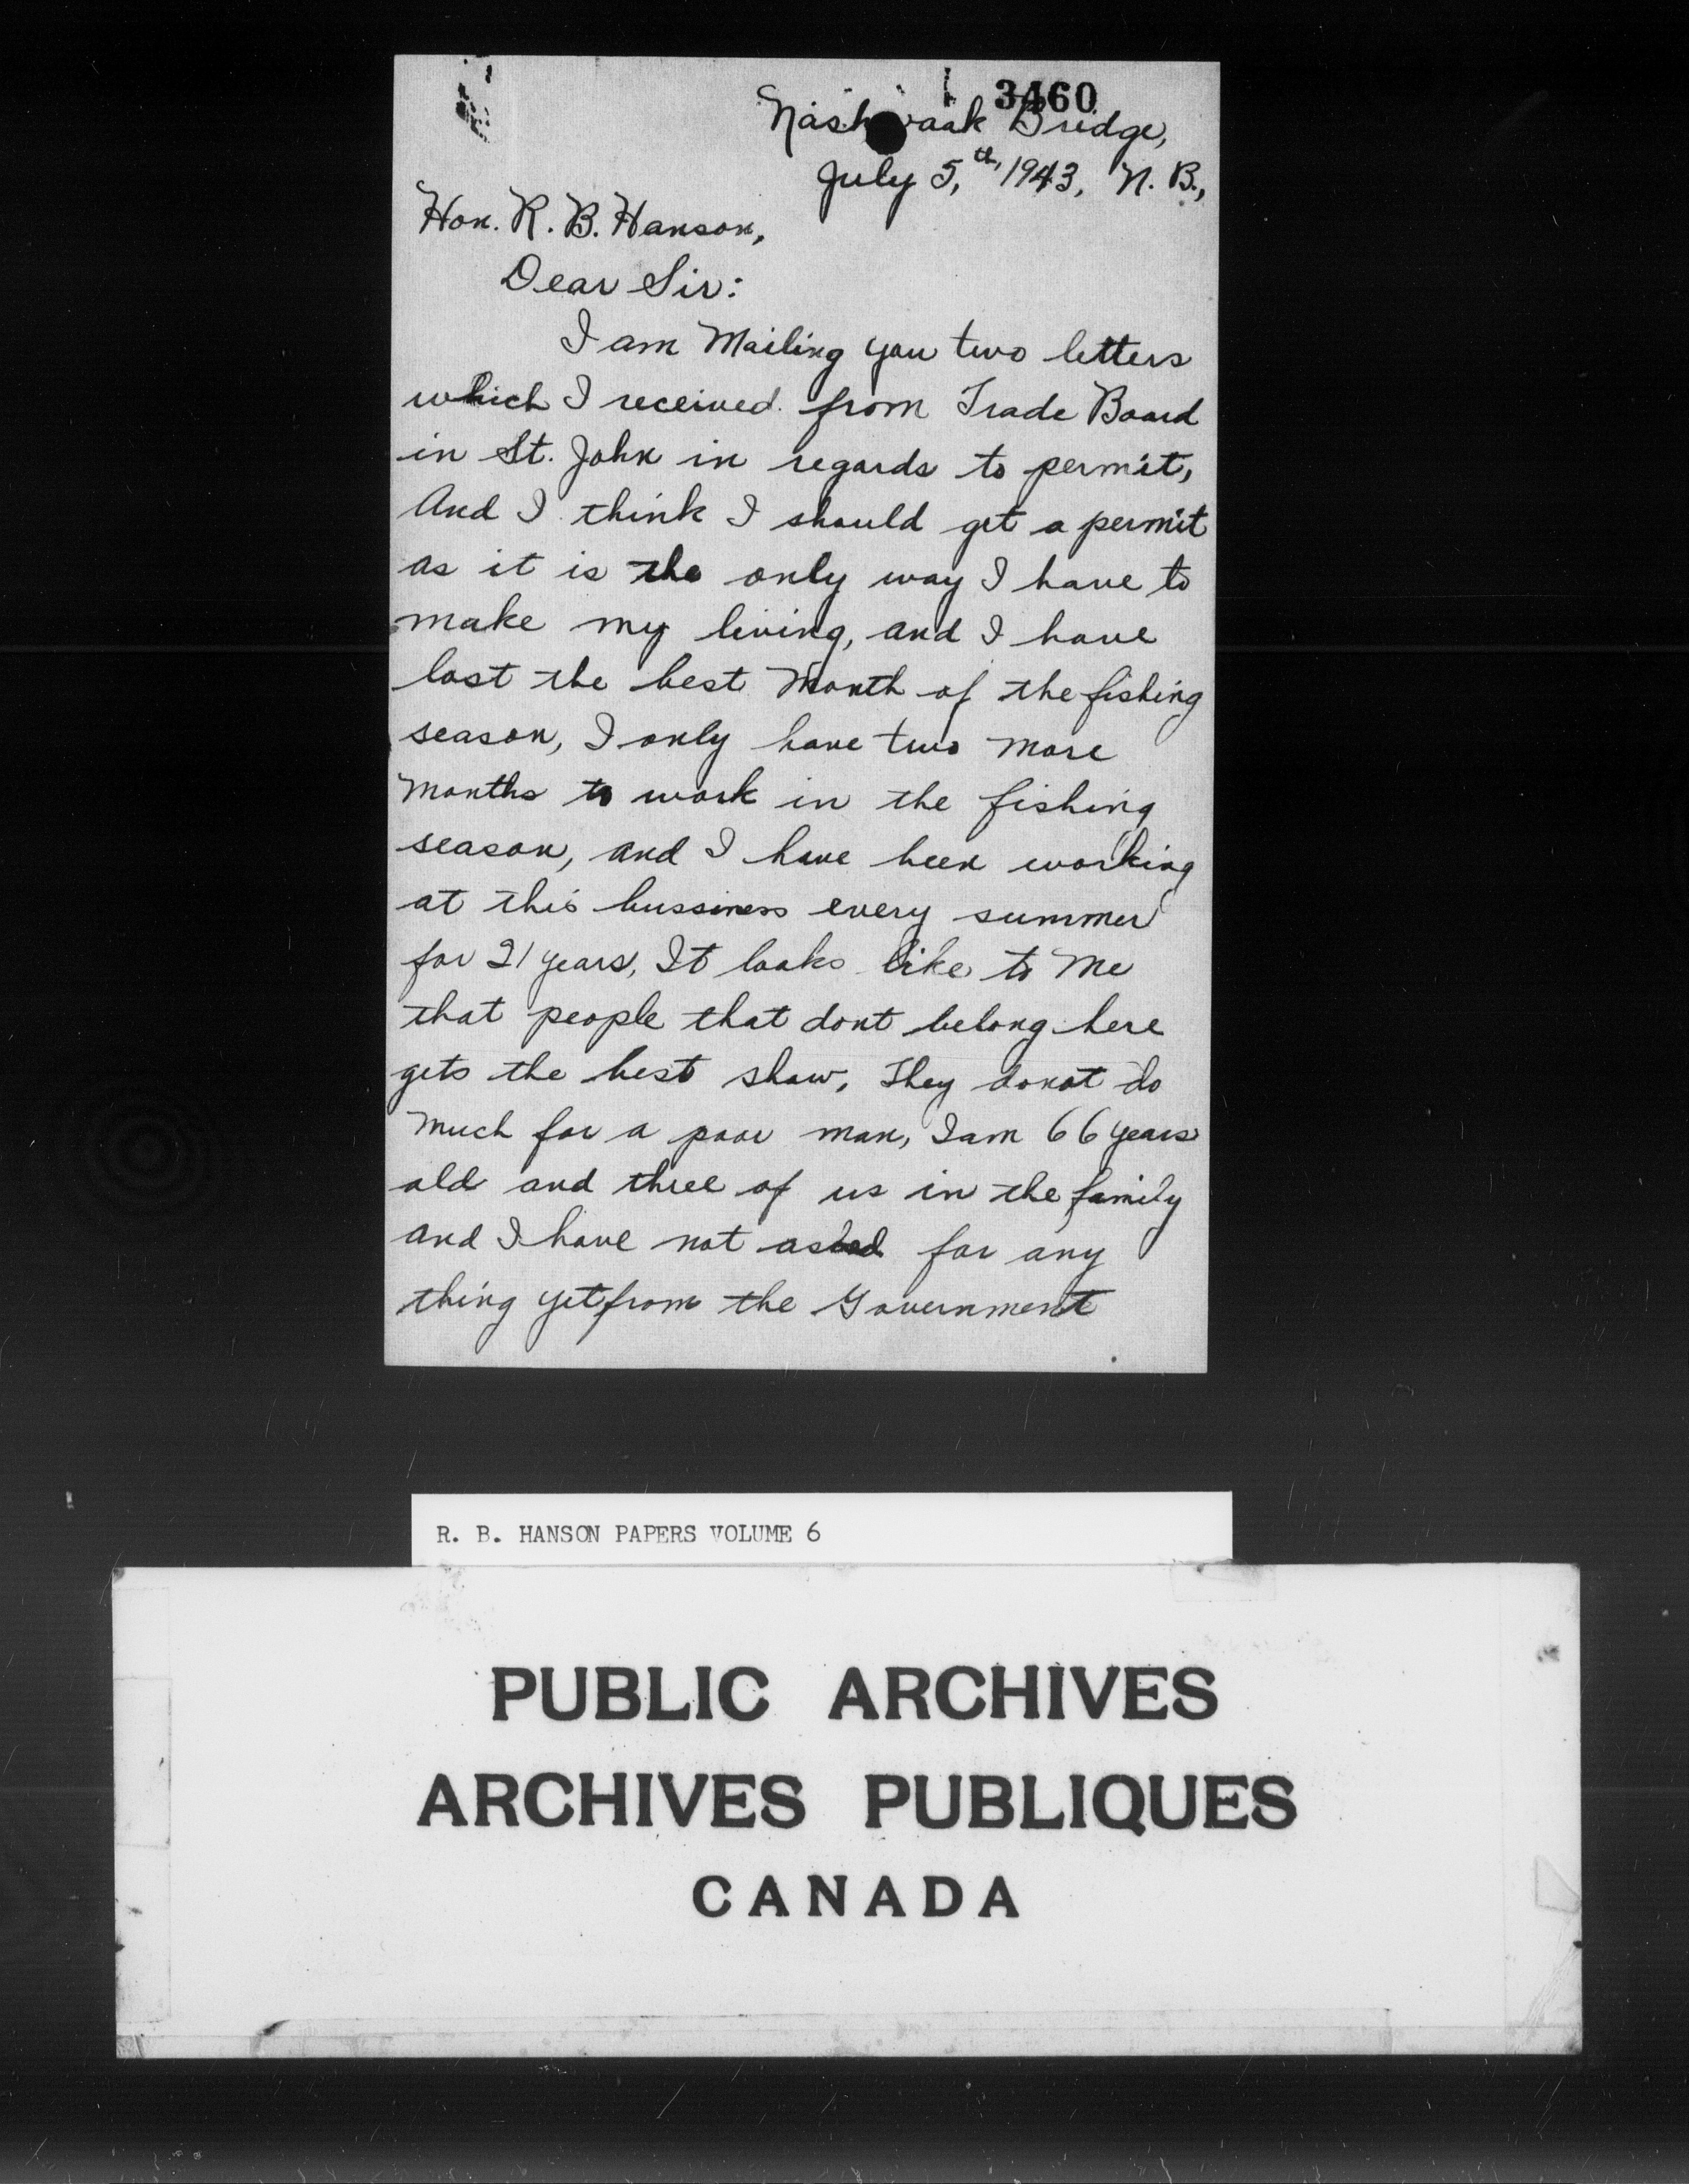 3460
Nashwaak Bridge,
July 5,th, 1943, N. B.,
Hon. R. B. Hanson,
Dear Sir:
I am Mailing you two letters
which I received from Trade Board
in St. John in regards to permit,
And I think I should get a permit
as it is the only way I have to
make my living, and I have
lost the best Month of the fishing
season, I only have two more
Months to work in the fishing
season, and I have been working
at this bussiness every summer
for 21 years, It looks like to Me
that people that dont belong here
gets the best show, They donot do
Much for a poor man, I am 66 years
old and three of us in the family
and I have not asked for any
thing yet from the Government
R. B. HANSON PAPERS VOLUME 6
PUBLIC ARCHIVES
ARCHIVES PUBLIQUES
CANADA